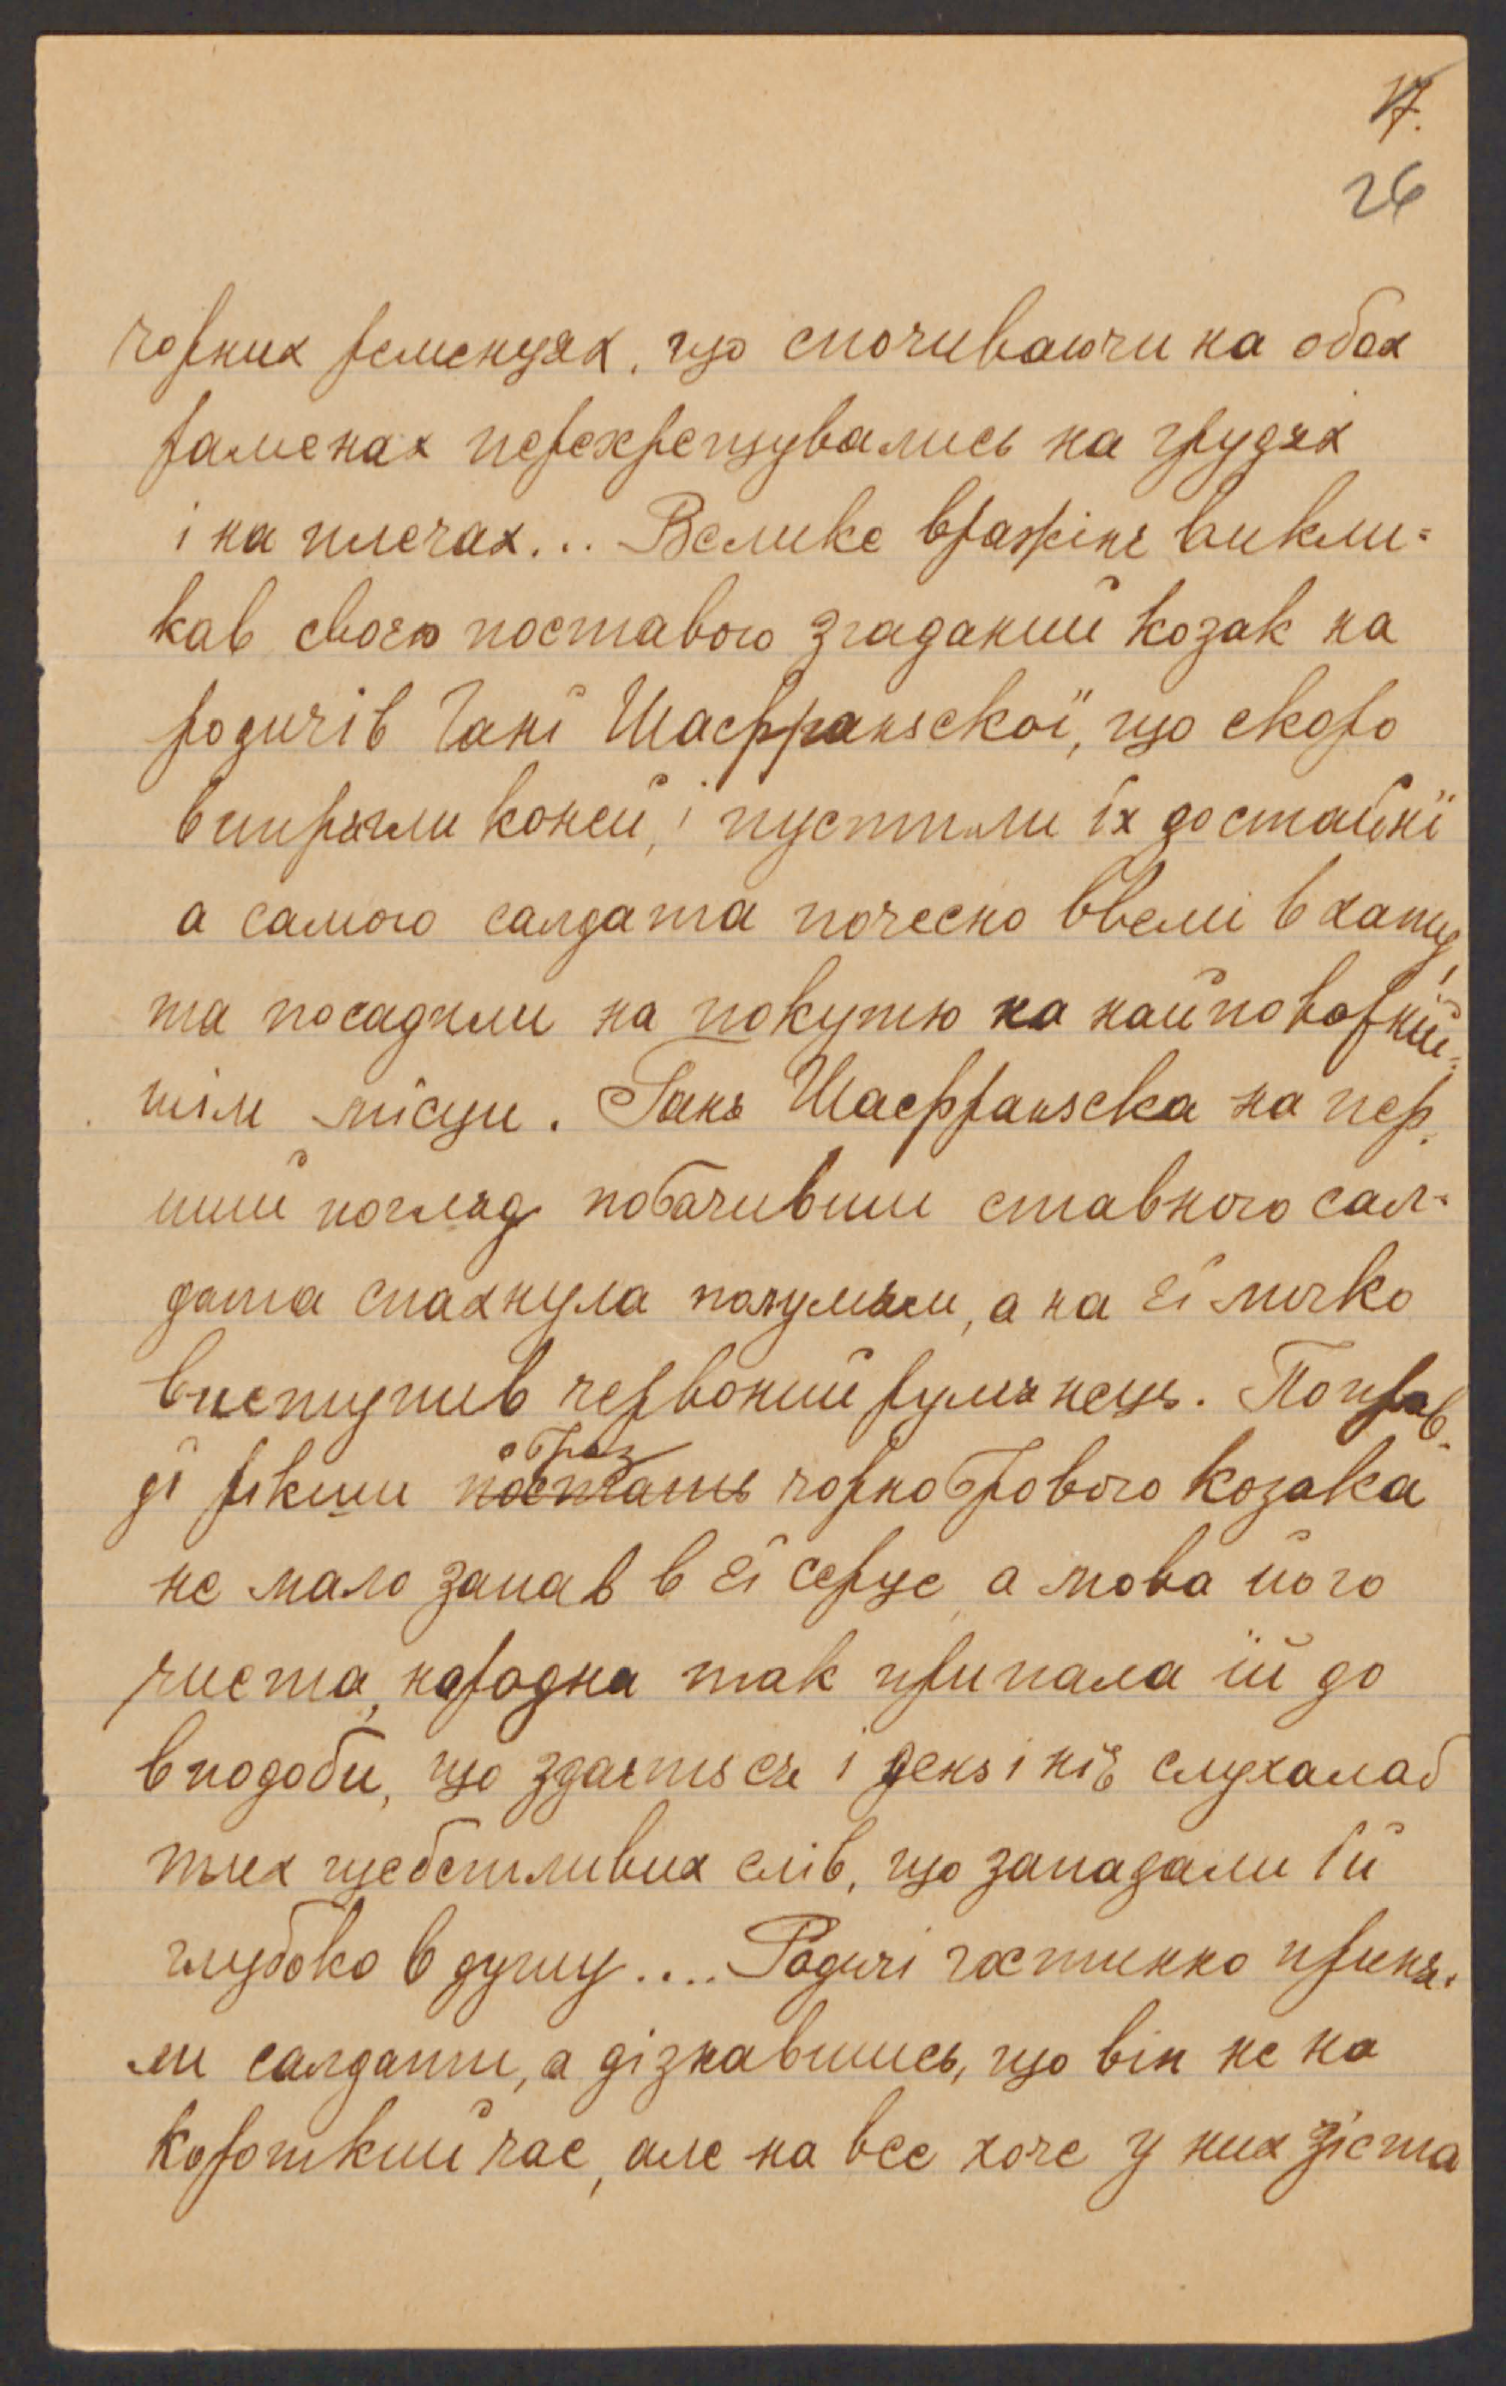 17.
26
чорних ременцях, що спочиваючи на обох
раменах перехрещувались на грудях
і на плечах... Велике вражінє викли=
кав своєю поставою згаданий козак на
родичів Гані Шафраньскої, що скоро
випрягли коней, і пустили їх до стайнї
а самого салдата почесно ввели в хату,
та посадили на покутю на найповажнїй=
шім місци. Гань Шафраньска на пер=
ший погляд побачивши ставного сал=
дата спахнула полумям, а на єї личко
виступив червоний румянець. Поправ=
дї рікши постать образ чорнобрового козака
не мало запав в єї серце, а мова його
чиста, народна так припала їй до
вподоби, що здаєть ся і день і ніч слухалаб
тих щебетливих слів, що западали їй
глубоко в душу.... Родичі гостинно приня=
ли салдати, а дізнавшись, що він не на
короткий час, але на все хоче у них зіста